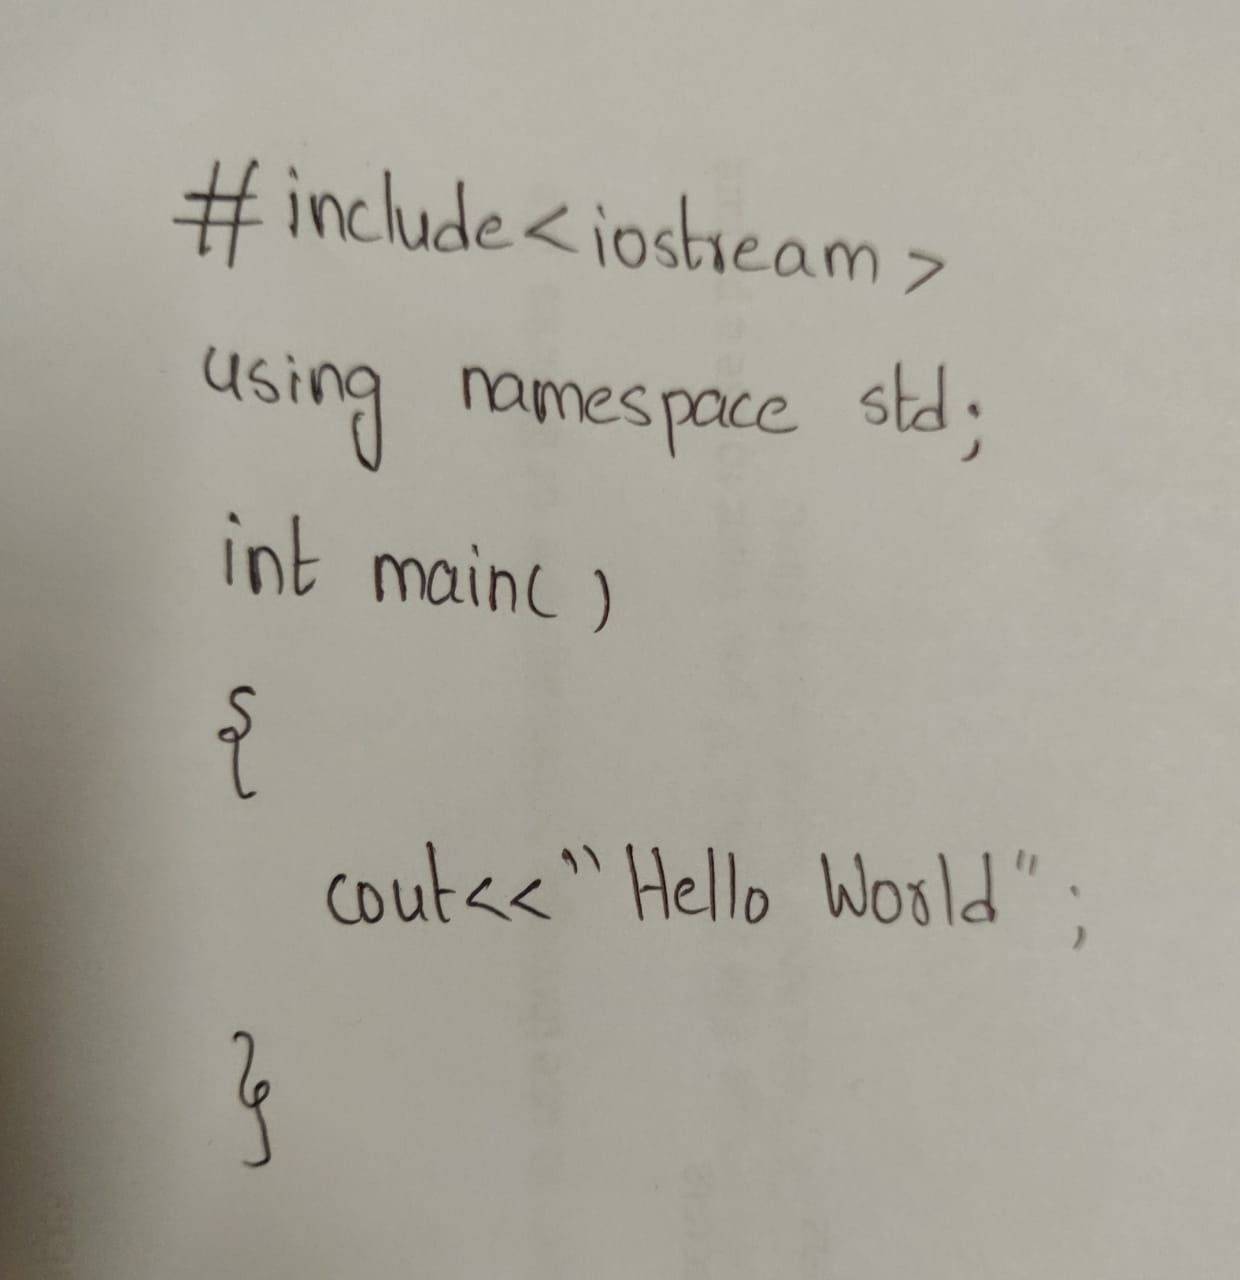 #include<iostream>
using namespace std;
int main()
{
cout<<"Hello World";
}